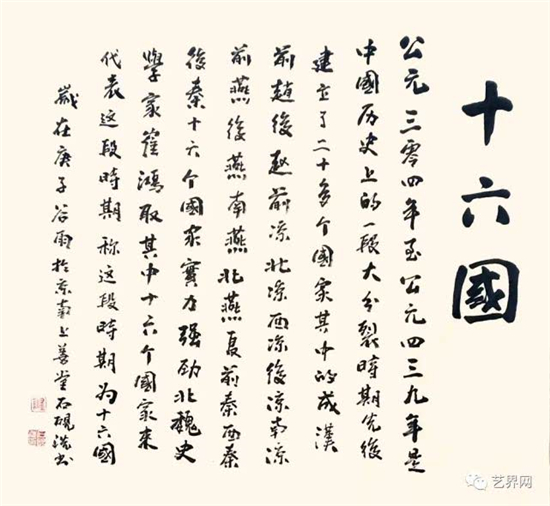 十六國
公元三零四年至公元四三九年是
中國历史上的一段大分裂時期先後
建立了二十多个國家其中的成漢
前趙後趙前凉北凉西凉後凉南凉
前燕後燕南燕北燕夏前秦西秦
後秦十六个國家實力强劲北魏史
學家崔鴻取其中十六个國家来
代表這段時期称這段時期为十六國
歲在庚子谷雨於京南上善堂石硯洪书
艺界网